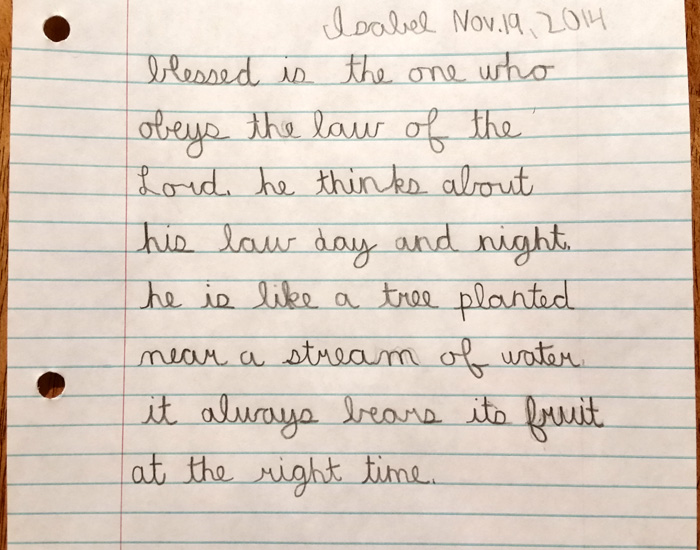 Isabel Nov.19, 2014
blessed is the one who
obeys the law of the
Lord. he thinks about
his law day and night.
he is like a tree planted
near a stream of water.
it always bears its fruit
at the right time.